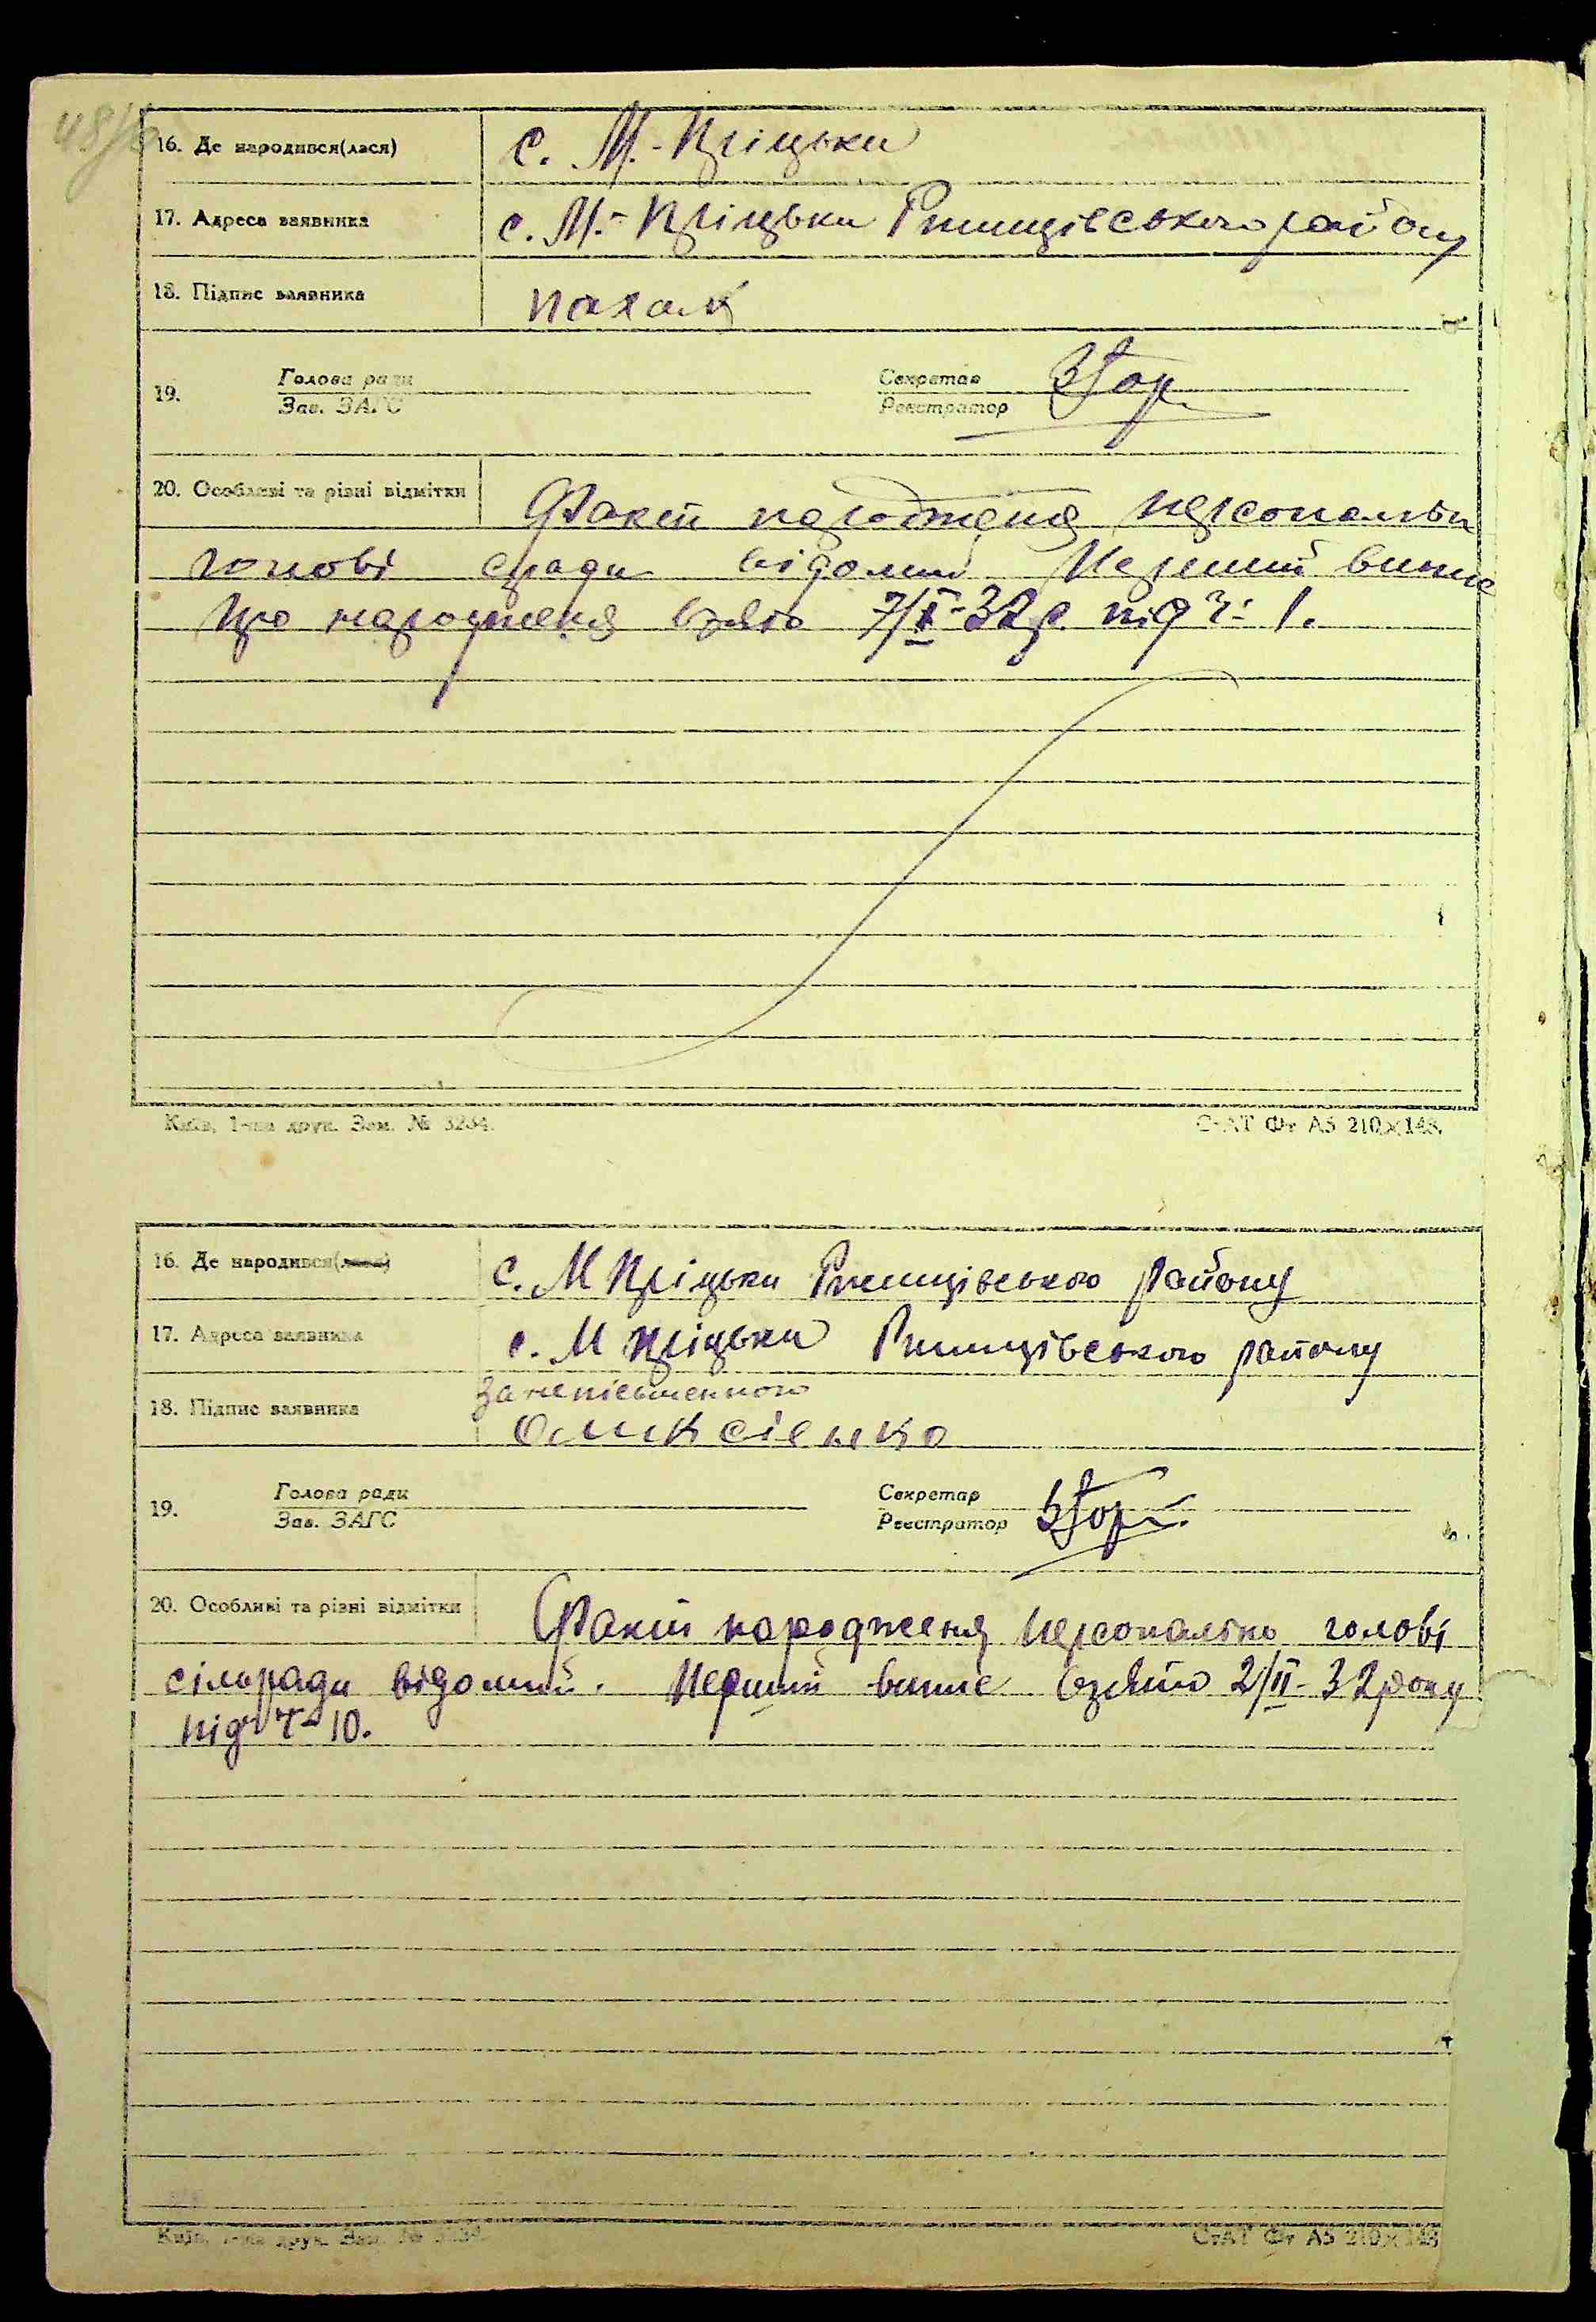 16. Де народився(лася) с. М.-Пріцьки
17. Адреса заявника с. М.-Пріцьки Ржищівського району
18. Підпис заявника
19. Голова ради Секретар
Зав. ЗАГС Реєстратор
20. Особливі та різні відмітки Факт народженя персональн
голові сради відомий Перший випис
про народженя взято 7/II-32р. під ч: 1.
Київ, 1-ша друк. Зам. № 3234. СтАТ Фт А5 210×148.
16. Де народився(лася) с. М Пріцьки Ржищівського району
17. Адреса заявника с. М Пріцьки Ржищівського району
за неписьменного
18. Підпис заявника Оликсіенко
19. Голова ради Секретар
Зав. ЗАГС Реєстратор
20. Особливі та різні відмітки Факт народженя персонально голові
сільради відомий. Перший випис взято 2/II-32року
під ч-10.
Київ, 1-ша друк. Зам. № 3234 СтАТ Фт А5 210×148